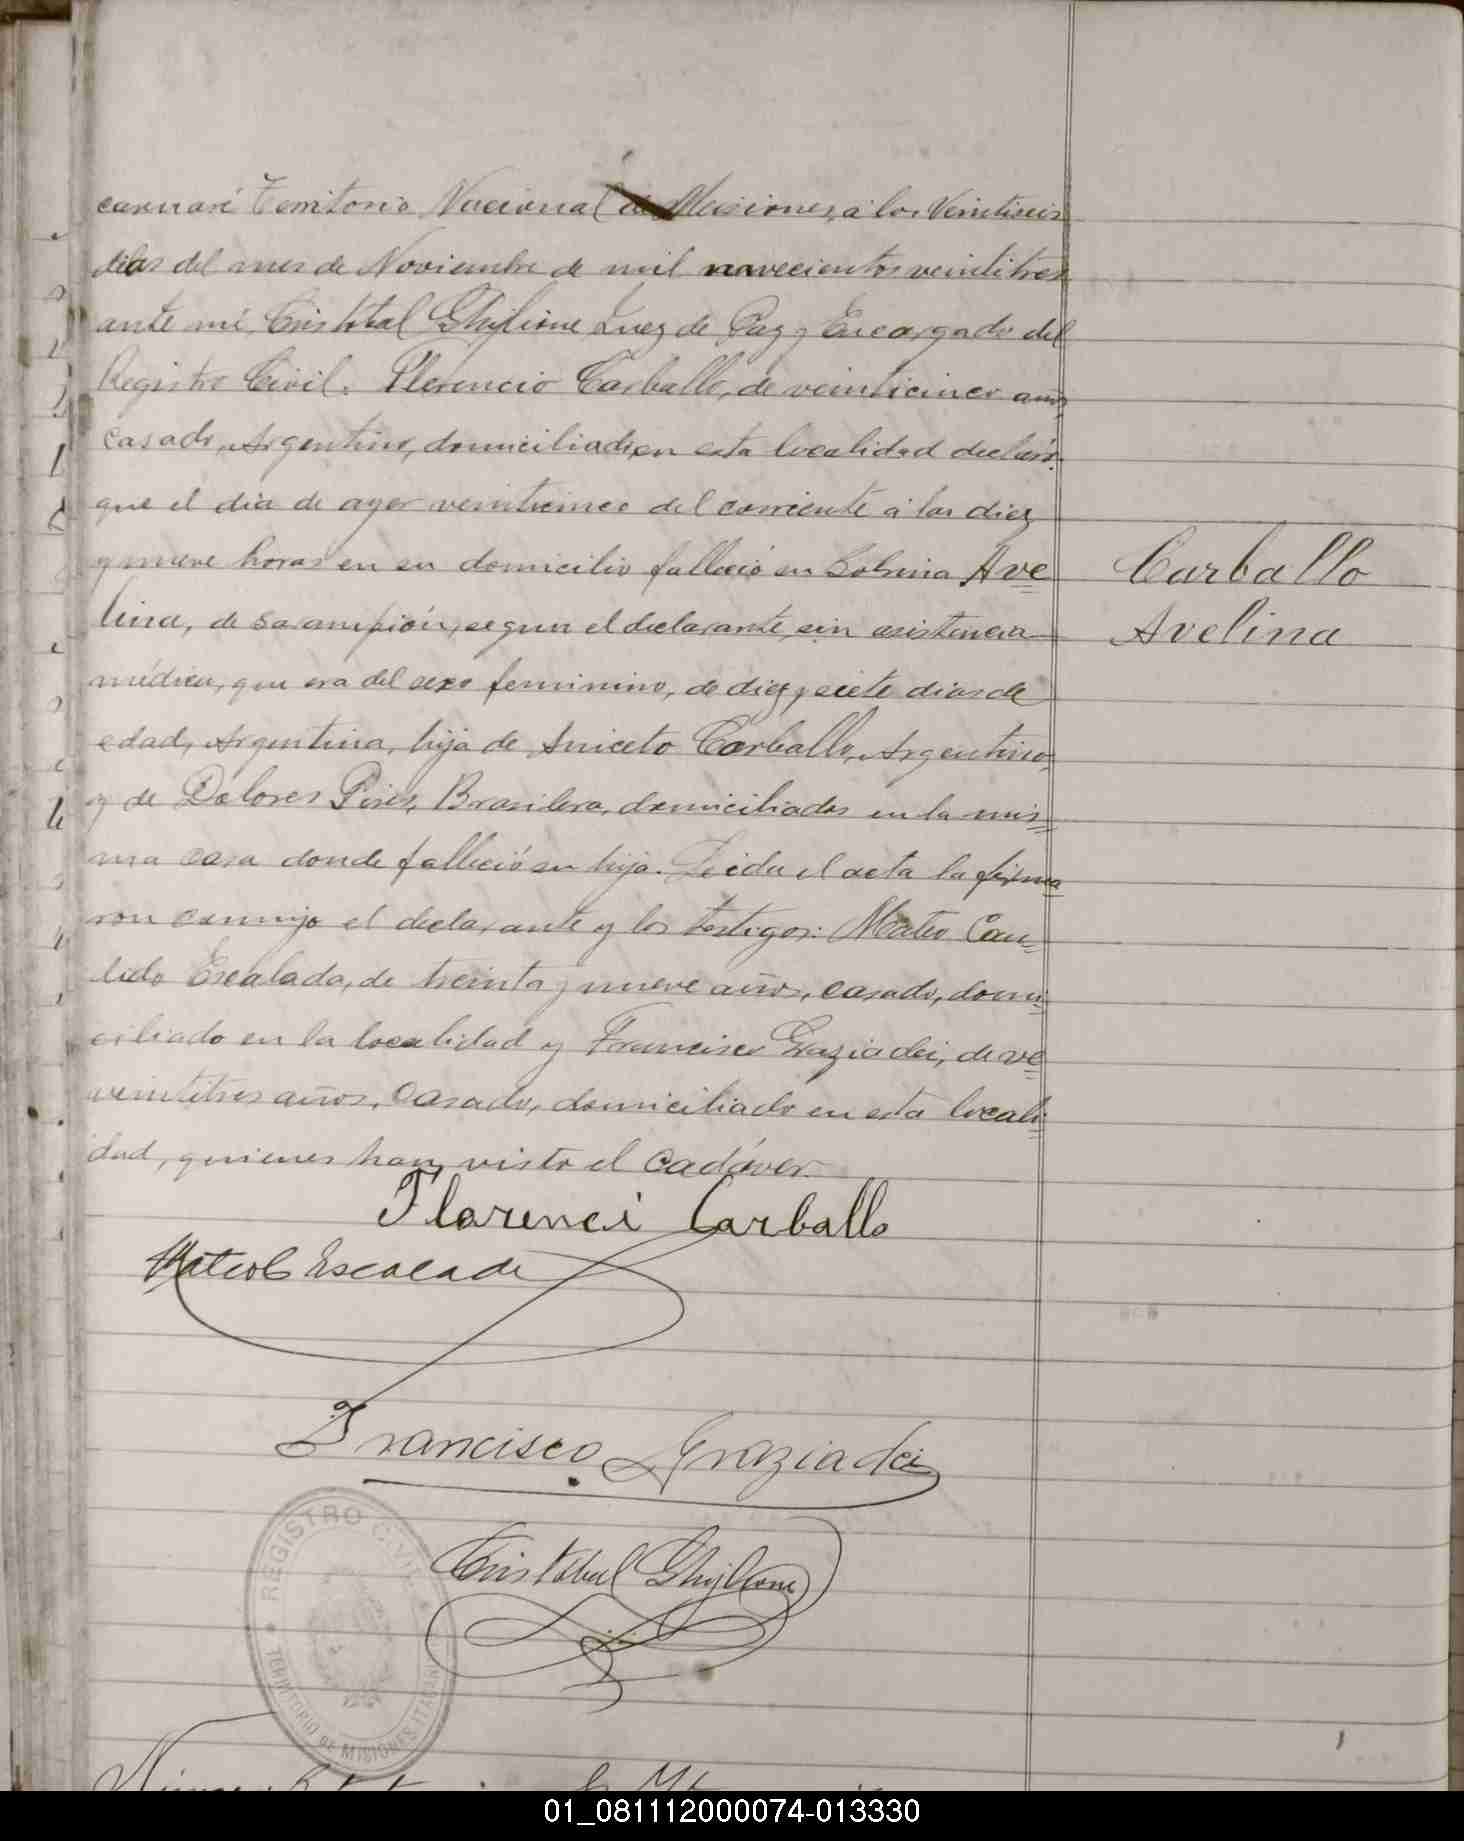 caruaré Territorio Nacional de Misiones, a los Veintiseis
dias del mes de Noviembre de mil novecientos veintitres
ante mi, Cristobal Ghiglione Juez de Paz y Encargado del
Registro Civil. Florencio Carballo, de veinticinco años,
casado, Argentino, domiciliado en esta localidad declaró:
que el dia de ayer veinticinco del corriente a las diez
y nueve horas en su domicilio falleció su Sobrina Ave=
lina, de Sarampión, segun el declarante, sin asistencia
médica, que era del sexo feminino, de diez y siete dias de
edad, Argentina, hija de Aniceto Carballo, Argentino,
y de Dolores Pires, Brasilera, domiciliados en la mis=
ma casa donde falleció su hija. Leida el acta la firma=
ron conmigo el declarante y los testigos: Mateo Can=
dido Escalada, de treinta y nueve años, casado, domi=
ciliado en la localidad y Francisco Graziadei, de ve=
veintitres años, Casado, domiciliado en esta locali=
dad, quienes han visto el cadáver.
Carballo
Avelina
Florenci Carballo
Mateo C Escalada
Francisco Graziadei
Cristobal Ghiglione
REGISTRO CIVIL
TERRITORIO DE MISIONES
01_081112000074-013330